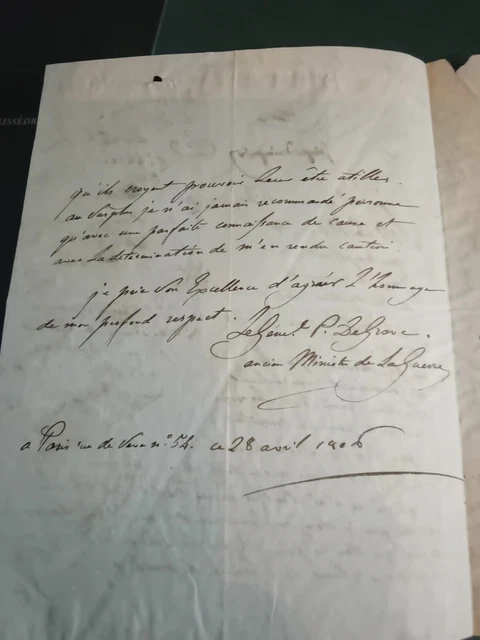 qu'ils croyent pouvoir leur être utiles.
au surplus je n'ai jamais recommandé personne
qu'avec une parfaite connaissance de cause et
avec la determination de m'en rendre caution.
je prie son Excellence d'agréer l'homage
de mon profond respect.
Le Génér.l P. DeGrave.
ancien Ministre de La Guerre
a Paris rue de n.o 54. ce 28 avril 1806